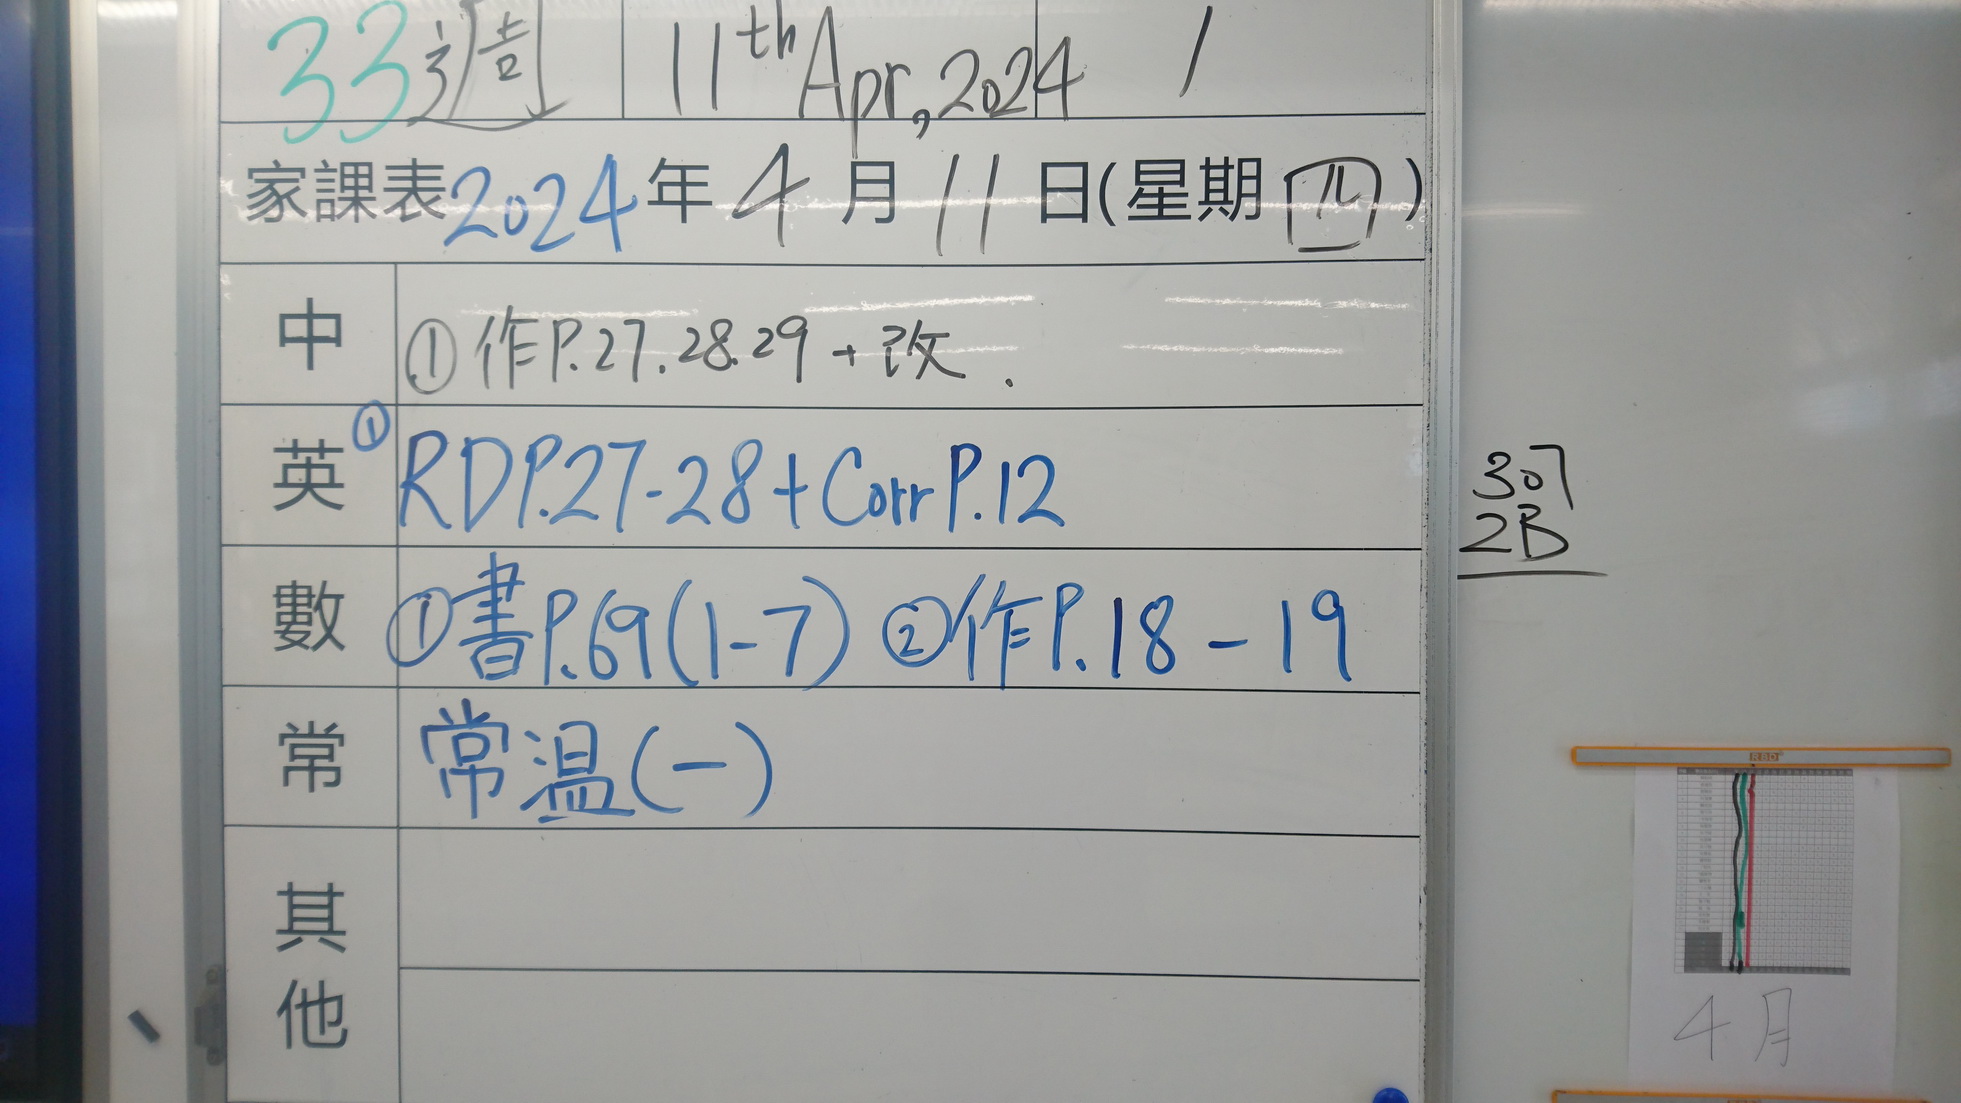 33週 11th Apr, 2024 /
家課表 2024年4月11日(星期四)
中 ①作P.27.28.29 + 改.
英 ①RD P.27-28 + Corr P.12
數 ①書P.69(1-7) ②作P.18-19
常 常温(一)
其他
307
2B
RBD
4月